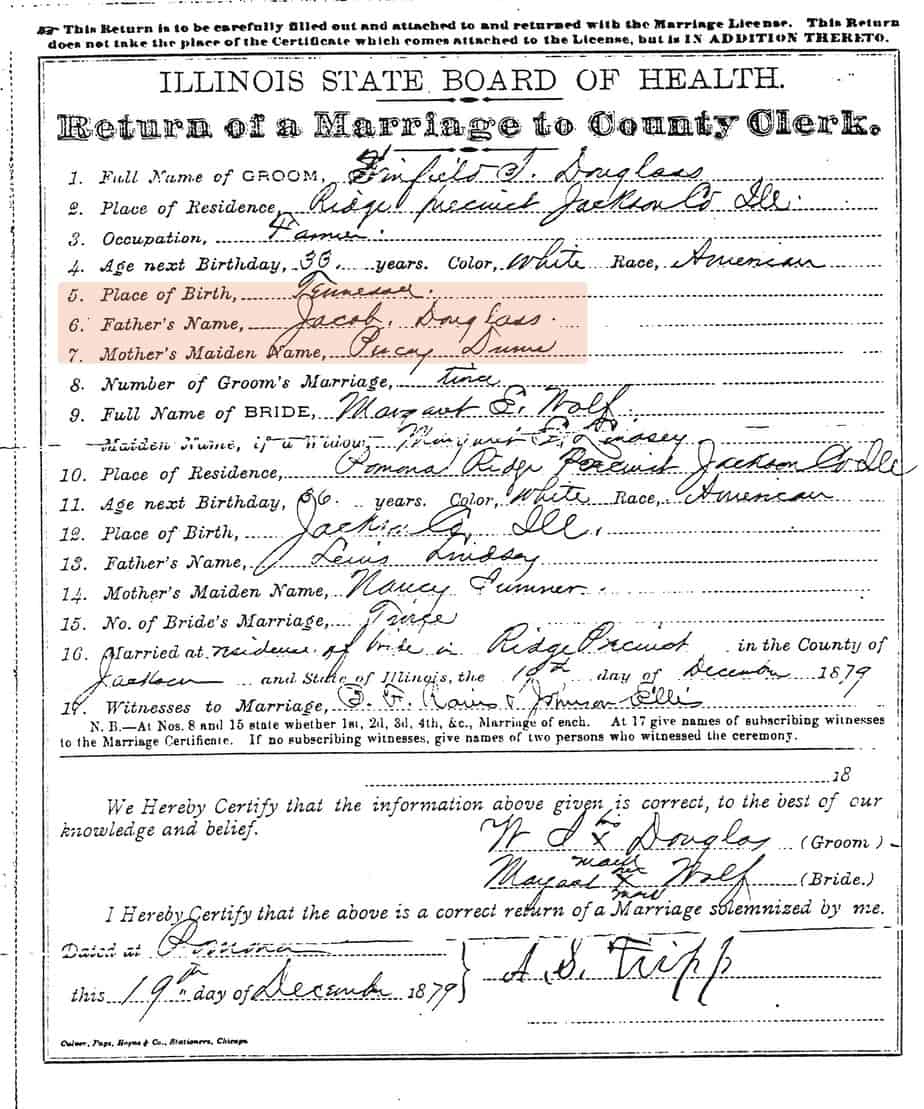 This Return is to be carefully filled out and attached to and returned with the Marriage License. This Return
does not take the place of the Certificate which comes attached to the License, but is IN ADDITION THERETO.
ILLINOIS STATE BOARD OF HEALTH.
Return of a Marriage to County Clerk.
1. Full Name of GROOM, Winfield S. Douglass
2. Place of Residence, Ridge precinct Jackson Co Ill.
3. Occupation, Farmer.
4. Age next Birthday, 33 years. Color, White Race, American
5. Place of Birth, Tennessee.
6. Father's Name, Jacob Douglass.
7. Mother's Maiden Name,
8. Number of Groom's Marriage,
9. Full Name of BRIDE, Margaret E. Wolf
Maiden Name, if a Widow, Margaret E. Lindsey
10. Place of Residence, Pomona Ridge Precinct Jackson Co Ill
11. Age next Birthday, 36 years. Color, White Race, American
12. Place of Birth, Jackson Co, Ill.
13. Father's Name, Lewis Lindsey
14. Mother's Maiden Name, Nancy Sumner
15. No. of Bride's Marriage, Twice
16. Married at residence of bride in Ridge Precinct in the County of
Jackson and State of Illinois, the 19th day of December 1879
17. Witnesses to Marriage, Johnson Ellis
N. B.—At Nos. 8 and 15 state whether 1st, 2d, 3d, 4th, &c., Marriage of each. At 17 give names of subscribing witnesses
to the Marriage Certificate. If no subscribing witnesses, give names of two persons who witnessed the ceremony.
18
We Hereby Certify that the information above given is correct, to the best of our
knowledge and belief.
W S his x Douglas (Groom)
mark
Margaret her x Wolf (Bride.)
mark
I Hereby Certify that the above is a correct return of a Marriage solemnized by me.
Dated at Pomona
this 19th day of December 1879
A. S. Tripp
Culver, Page, Hoyne & Co., Stationers, Chicago